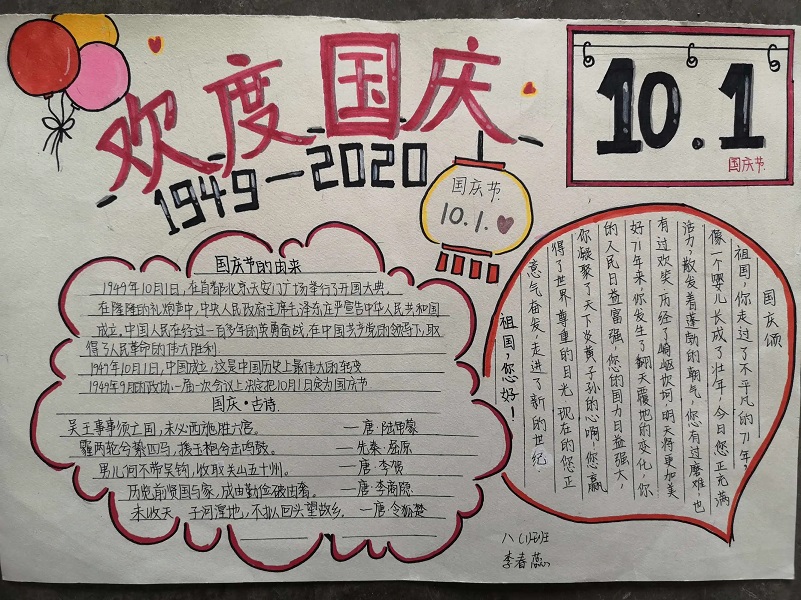 欢度国庆
1949—2020
10.1
国庆节
国庆节
10.1.
国庆节的由来
1949年10月1日,在首都北京天安门广场举行了开国大典.
在隆隆的礼炮声中,中央人民政府主席毛泽东庄严宣告中华人民共和国
成立,中国人民在经过一百多年的英勇奋战,在中国共产党的领导下,取
得了人民革命的伟大胜利.
1949年10月1日,中国成立,这是中国历史上最伟大的转变
1949年9月的政协一届一次会议上决定把10月1日定为国庆节
国庆·古诗.
吴王事事须亡国,未必西施胜六宫。 —唐·陆龟蒙
霾两轮兮絷四马,援玉枹兮击鸣鼓。 —先秦·屈原
男儿何不带吴钩,收取关山五十州。 —唐·李贺
历览前贤国与家,成由勤俭破由奢。 —唐·李商隐
未收天子河湟地,不拟回头望故乡。 —唐·令狐楚
国庆颂
祖国,你走过了不平凡的71年,
像一个婴儿长成了壮年,今日您正充满
活力,散发着蓬勃的朝气,您有过磨难,也
有过欢笑,历经了崎岖坎坷,明天将更加美
好71年来,你发生了翻天覆地的变化,你
的人民日益富强,您的国力日益强大,
你凝聚了天下炎黄子孙的心啊!您赢
得了世界尊重的目光,现在的您正
意气奋发,走进了新的世纪
祖国,您好!
八(1)班
李春蕊